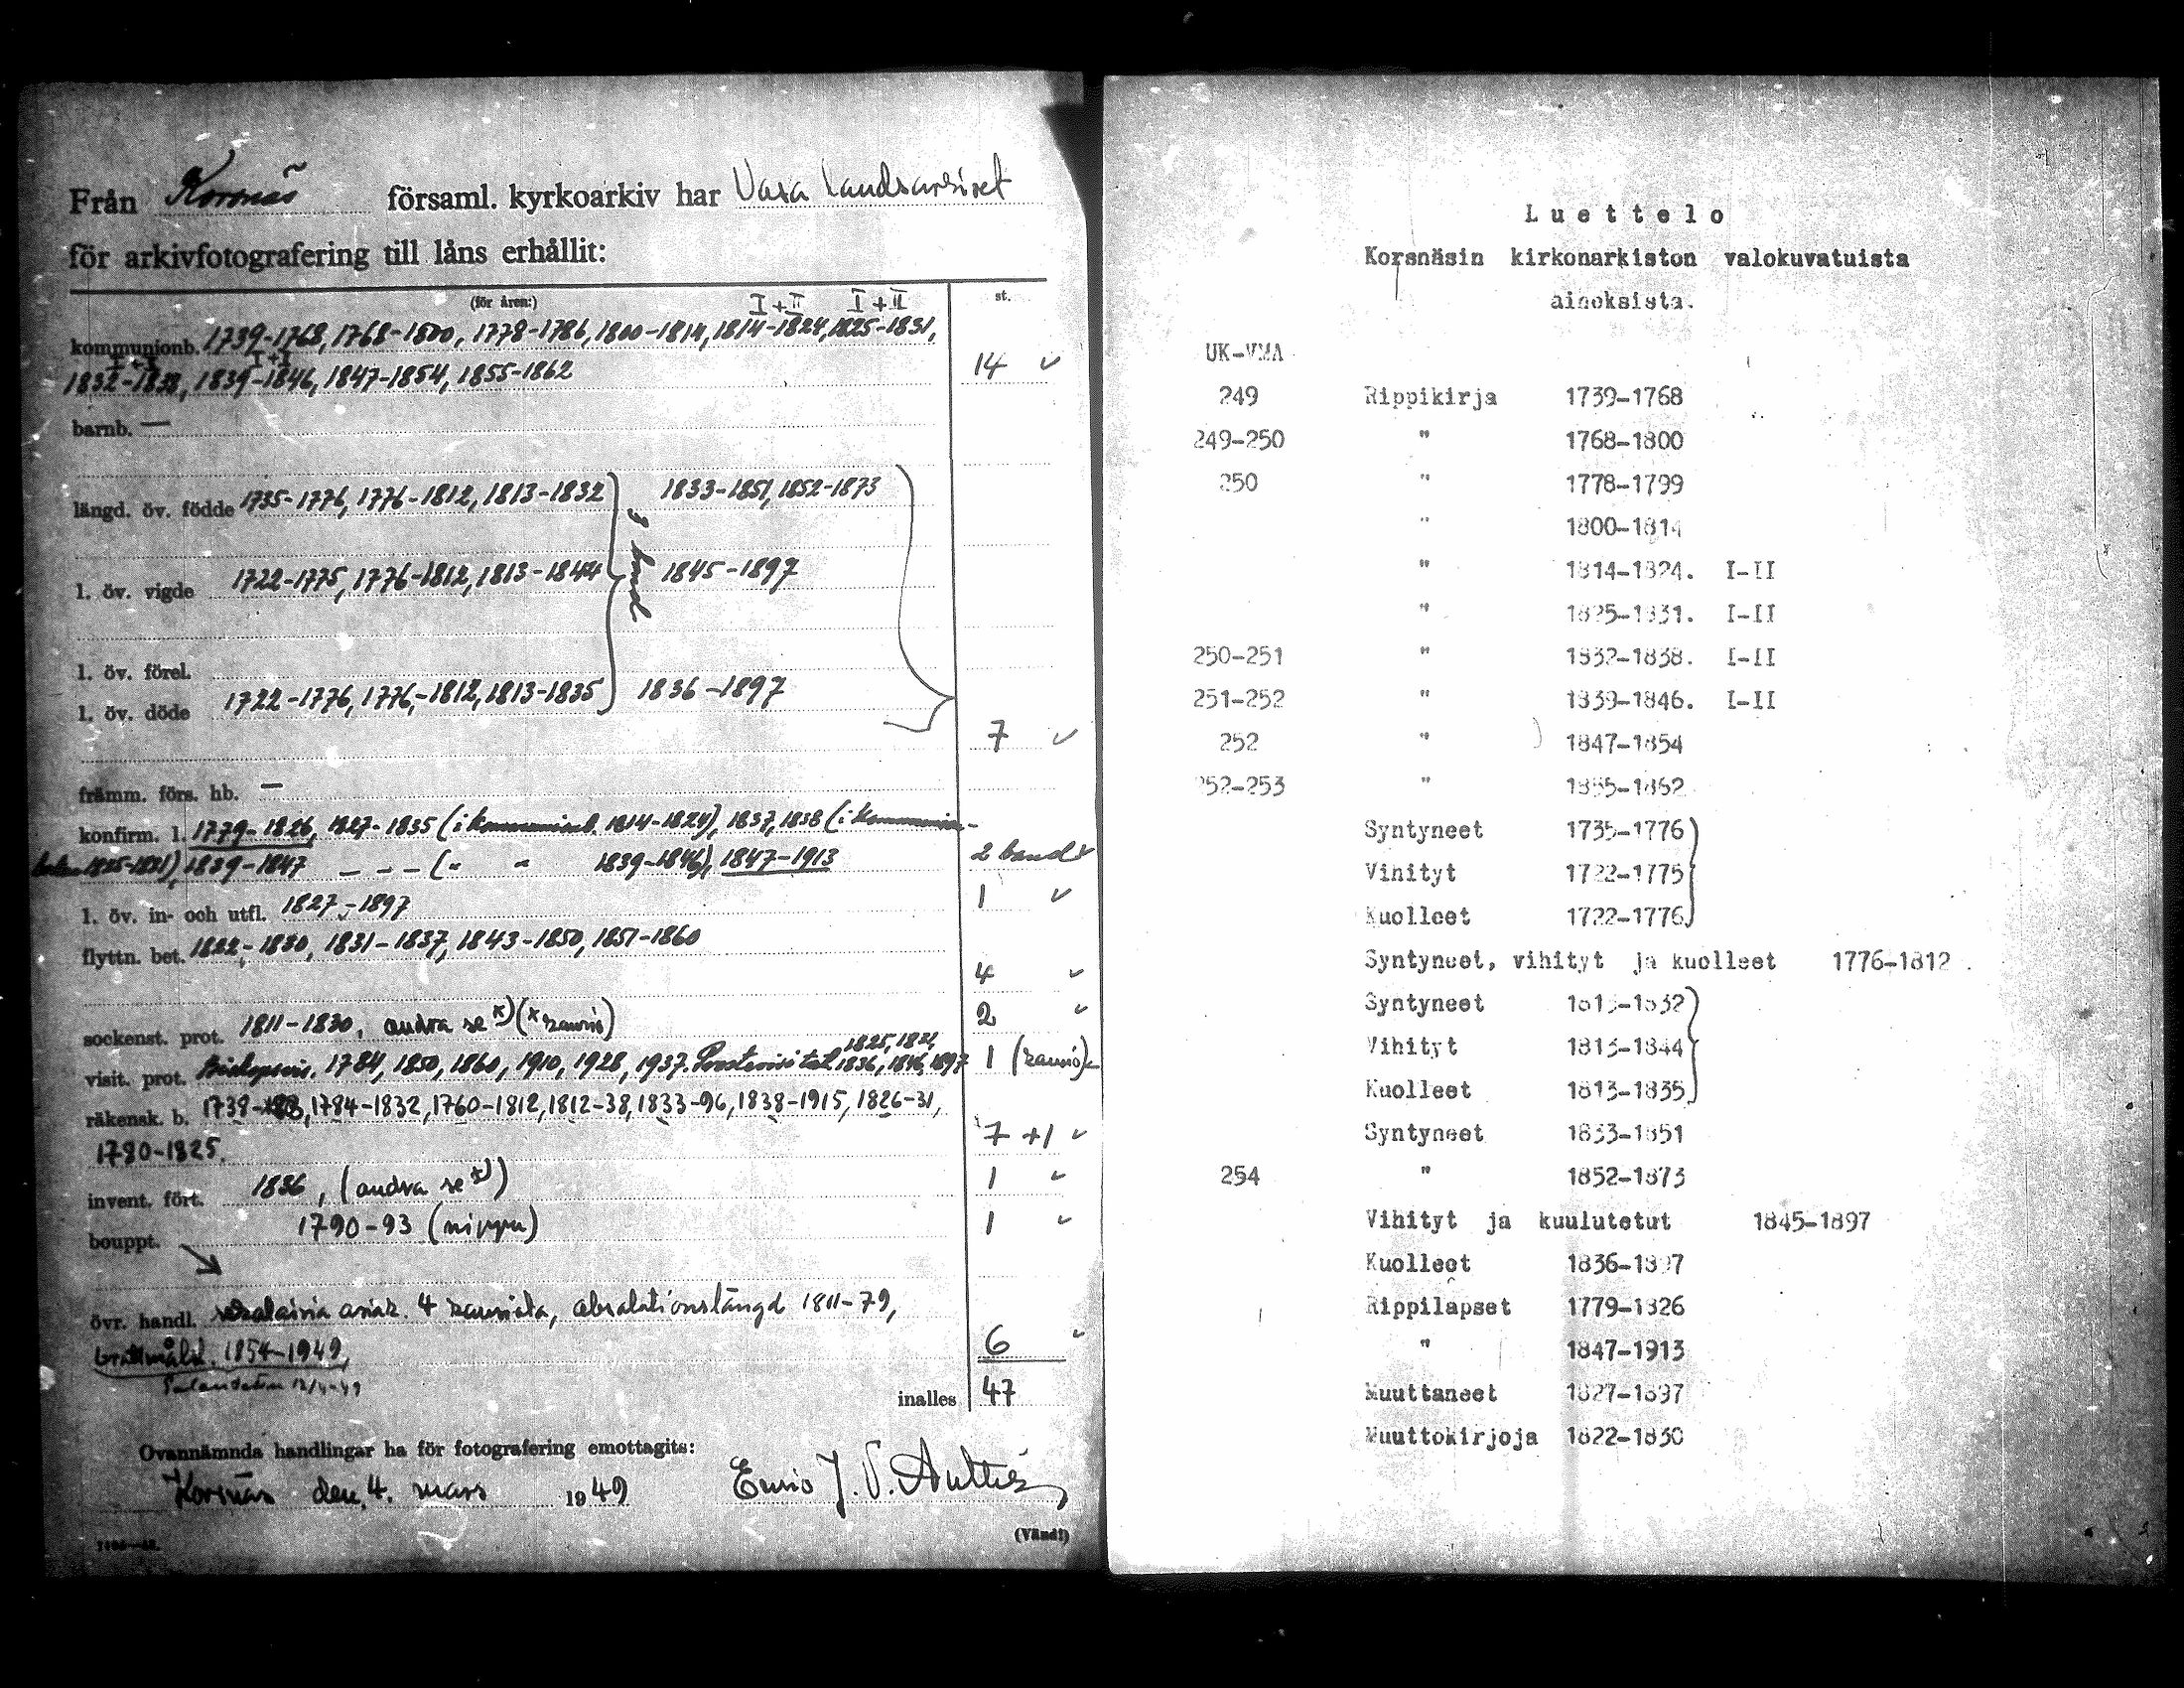 Från Korsnäs församl. kyrkoarkiv har Vasa landsarkivet
för arkivfotografering till låns erhållit:
(för åren:) I+II I+II st.
kommunionb. 1739-1768, 1768-1800, 1778-1786, 1800-1814, 1814-1824, 1825-1831,
I+I I+I
1832-1838, 1839-1846, 1847-1854, 1855-1862 14 ✓
barnb. —
längd. öv. födde 1735-1776, 1776-1812, 1813-1832 1833-1851, 1852-1873
3 band
l. öv. vigde 1722-1775, 1776-1812, 1813-1844 1845-1897
l. öv. förel.
l. öv. döde 1722-1776, 1776-1812, 1813-1835 1836-1897
7 ✓
främm. förs. hb. —
konfirm. l. 1779-1826, 1827-1835 (i kommunionb. 1814-1824), 1837, 1838 (i kommunion-
boken 1825-1831), 1839-1847 — — — (" " 1839-1846), 1847-1913 2 band ✓
l. öv. in- och utfl. 1827-1897 1 ✓
flyttn. bet. 1822-1830, 1831-1837, 1843-1850, 1851-1860
4 ✓
sockenst. prot. 1811-1830, andra se x) (x kansio) 2 ✓
1825, 1821,
visit. prot. Biskopsvis. 1784, 1850, 1860, 1910, 1928, 1937. Prostvisitat. 1836, 1846, 1897 1 (kansio) ✓
räkensk. b. 1738-, 1784-1832, 1760-1812, 1812-38, 1833-96, 1838-1915, 1826-31,
1780-1825. 7 +1 ✓
invent. fört. 1836, (andra se x)) 1 ✓
bouppt. 1790-93 (nippu) 1 ✓
övr. handl. sekalaisia asiak. 4 kansiota, absolutionslängd 1811-79,
brottmålsl. 1854-1949, 6 ✓
12/4-49
inalles 47
Ovannämnda handlingar ha för fotografering emottagits:
Korsnäs den 4. mars 1949 J. V.
(Vänd!)
Luettelo
Korsnäsin kirkonarkiston valokuvatuista
ainoksista.
UK-VMA
249 Rippikirja 1739-1768
249-250 " 1768-1800
250 " 1778-1799
" 1800-1814
" 1814-1824. I-II
" 1825-1831. I-II
250-251 " 1832-1838. I-II
251-252 " 1839-1846. I-II
252 " 1847-1854
252-253 " 1855-1862
Syntyneet 1735-1776
Vihityt 1722-1775
Kuolleet 1722-1776
Syntyneet, vihityt ja kuolleet 1776-1812
Syntyneet 1813-1832
Vihityt 1813-1844
Kuolleet 1813-1835
Syntyneet 1833-1851
254 " 1852-1873
Vihityt ja kuulutetut 1845-1897
Kuolleet 1836-1897
Rippilapset 1779-1826
" 1847-1913
Muuttaneet 1827-1897
Muuttokirjoja 1822-1830